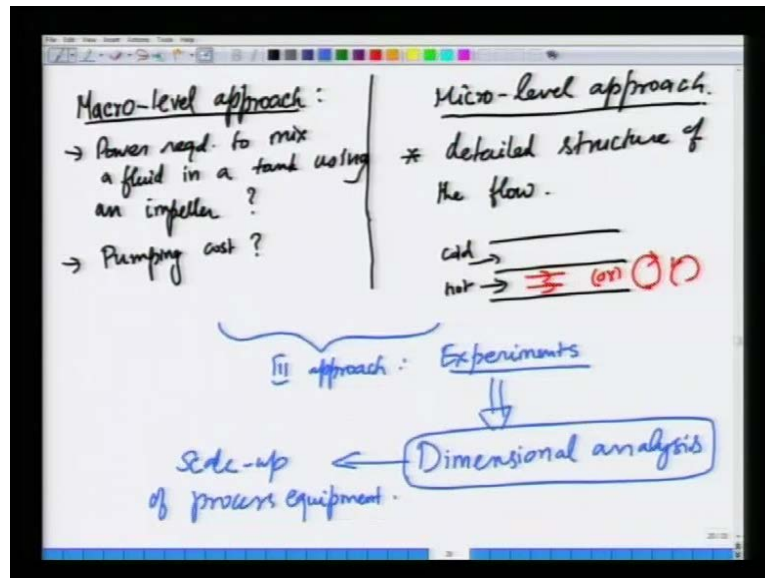 File Edit View Insert Actions Tools Help
Macro-level approach :
→ Power reqd. to mix
a fluid in a tank using
an impeller ?
→ Pumping cost ?
Micro-level approach.
* detailed structure of
the flow.
cold →
hot → (or)
III approach : Experiments
Dimensional analysis
scale-up
of process equipment.